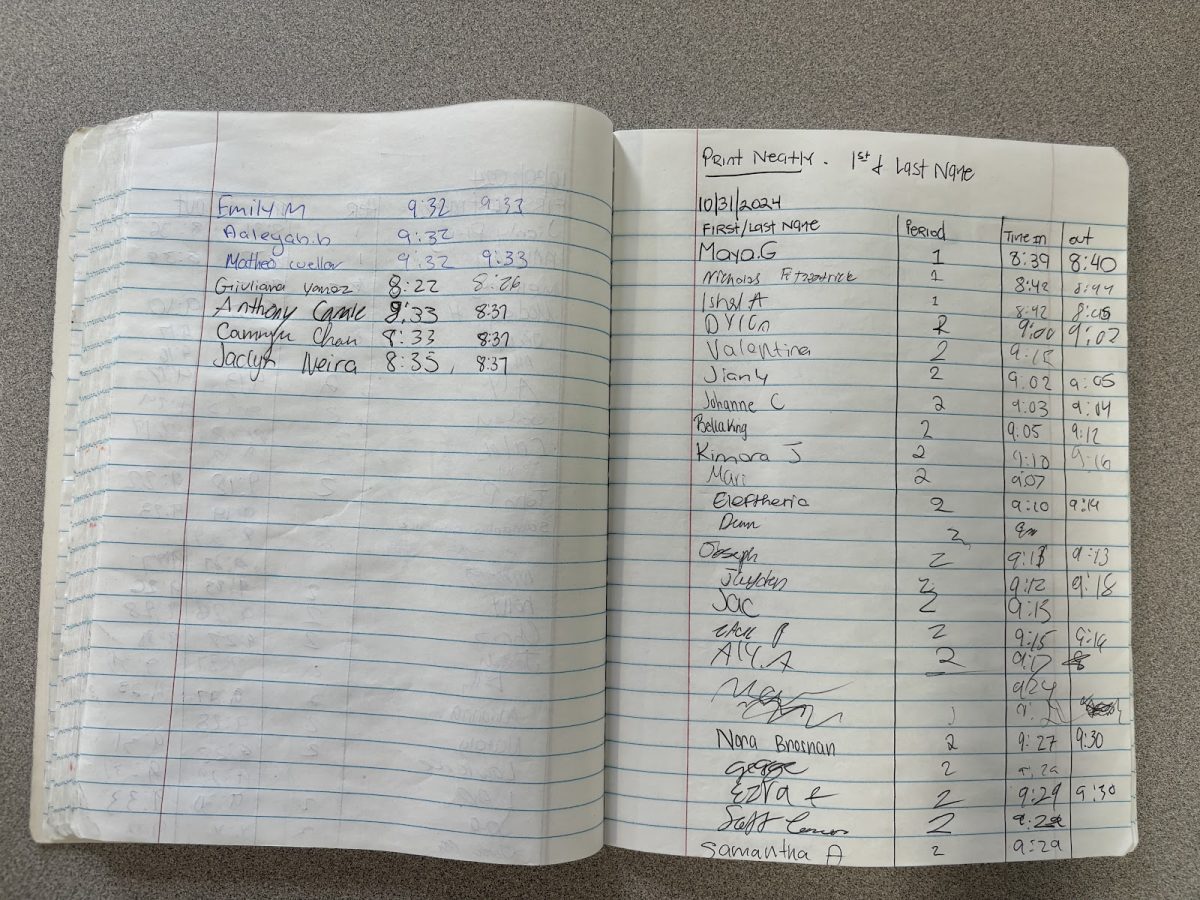 Emily M 9:32 9:33
Aaleyah.b 9:32
Matheo cuellar 9:32 9:33
Giuliana yanez 8:22 8:26
Anthony 8:33 8:37
Camryn Chan 8:33 8:37
Jaclyn Neira 8:35 8:37
Print Neatly. 1st & Last Name
10/31/2024
FIRST/LAST NAME PERIOD Time in out
Maya.G 1 8:39 8:40
Nicholas Fitzpatrick 1 8:42 8:44
Ishal A 1 8:42 8:45
2 9:00 9:02
Valentina 2 9:15
Jianly 2 9:02 9:05
Johanne C 2 9:03 9:04
Bella King 2 9:05 9:12
Kimora J 2 9:10 9:16
Mari 2 9:07
Eleftheria 2 9:10 9:14
2
Joseph 2 9:13 9:13
Jayden 2 9:12 9:18
Jac 2 9:15
zack P 2 9:15 9:16
Aly.A 2 9:17
9:24
Nora Brosnan 2 9:27 9:30
2 9:29
Ezra 2 9:29 9:30
2 9:29
Samantha A 2 9:29